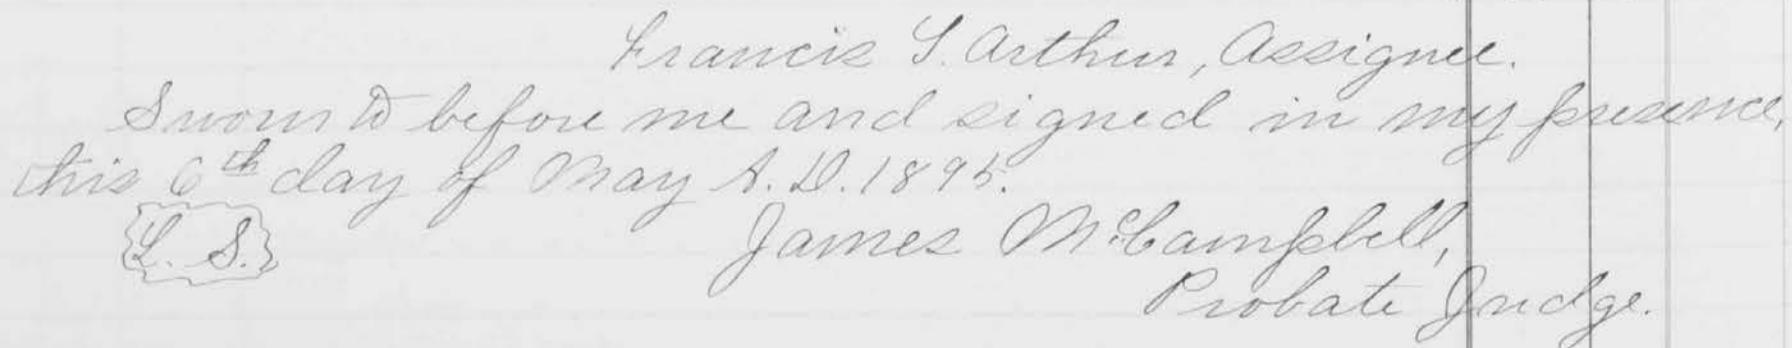 Francis S. Arthur, Assignee.
Sworn to before me and signed in my presence,
this 6th day of May A.D. 1895.
L. S.
James McCampbell,
Probate Judge.